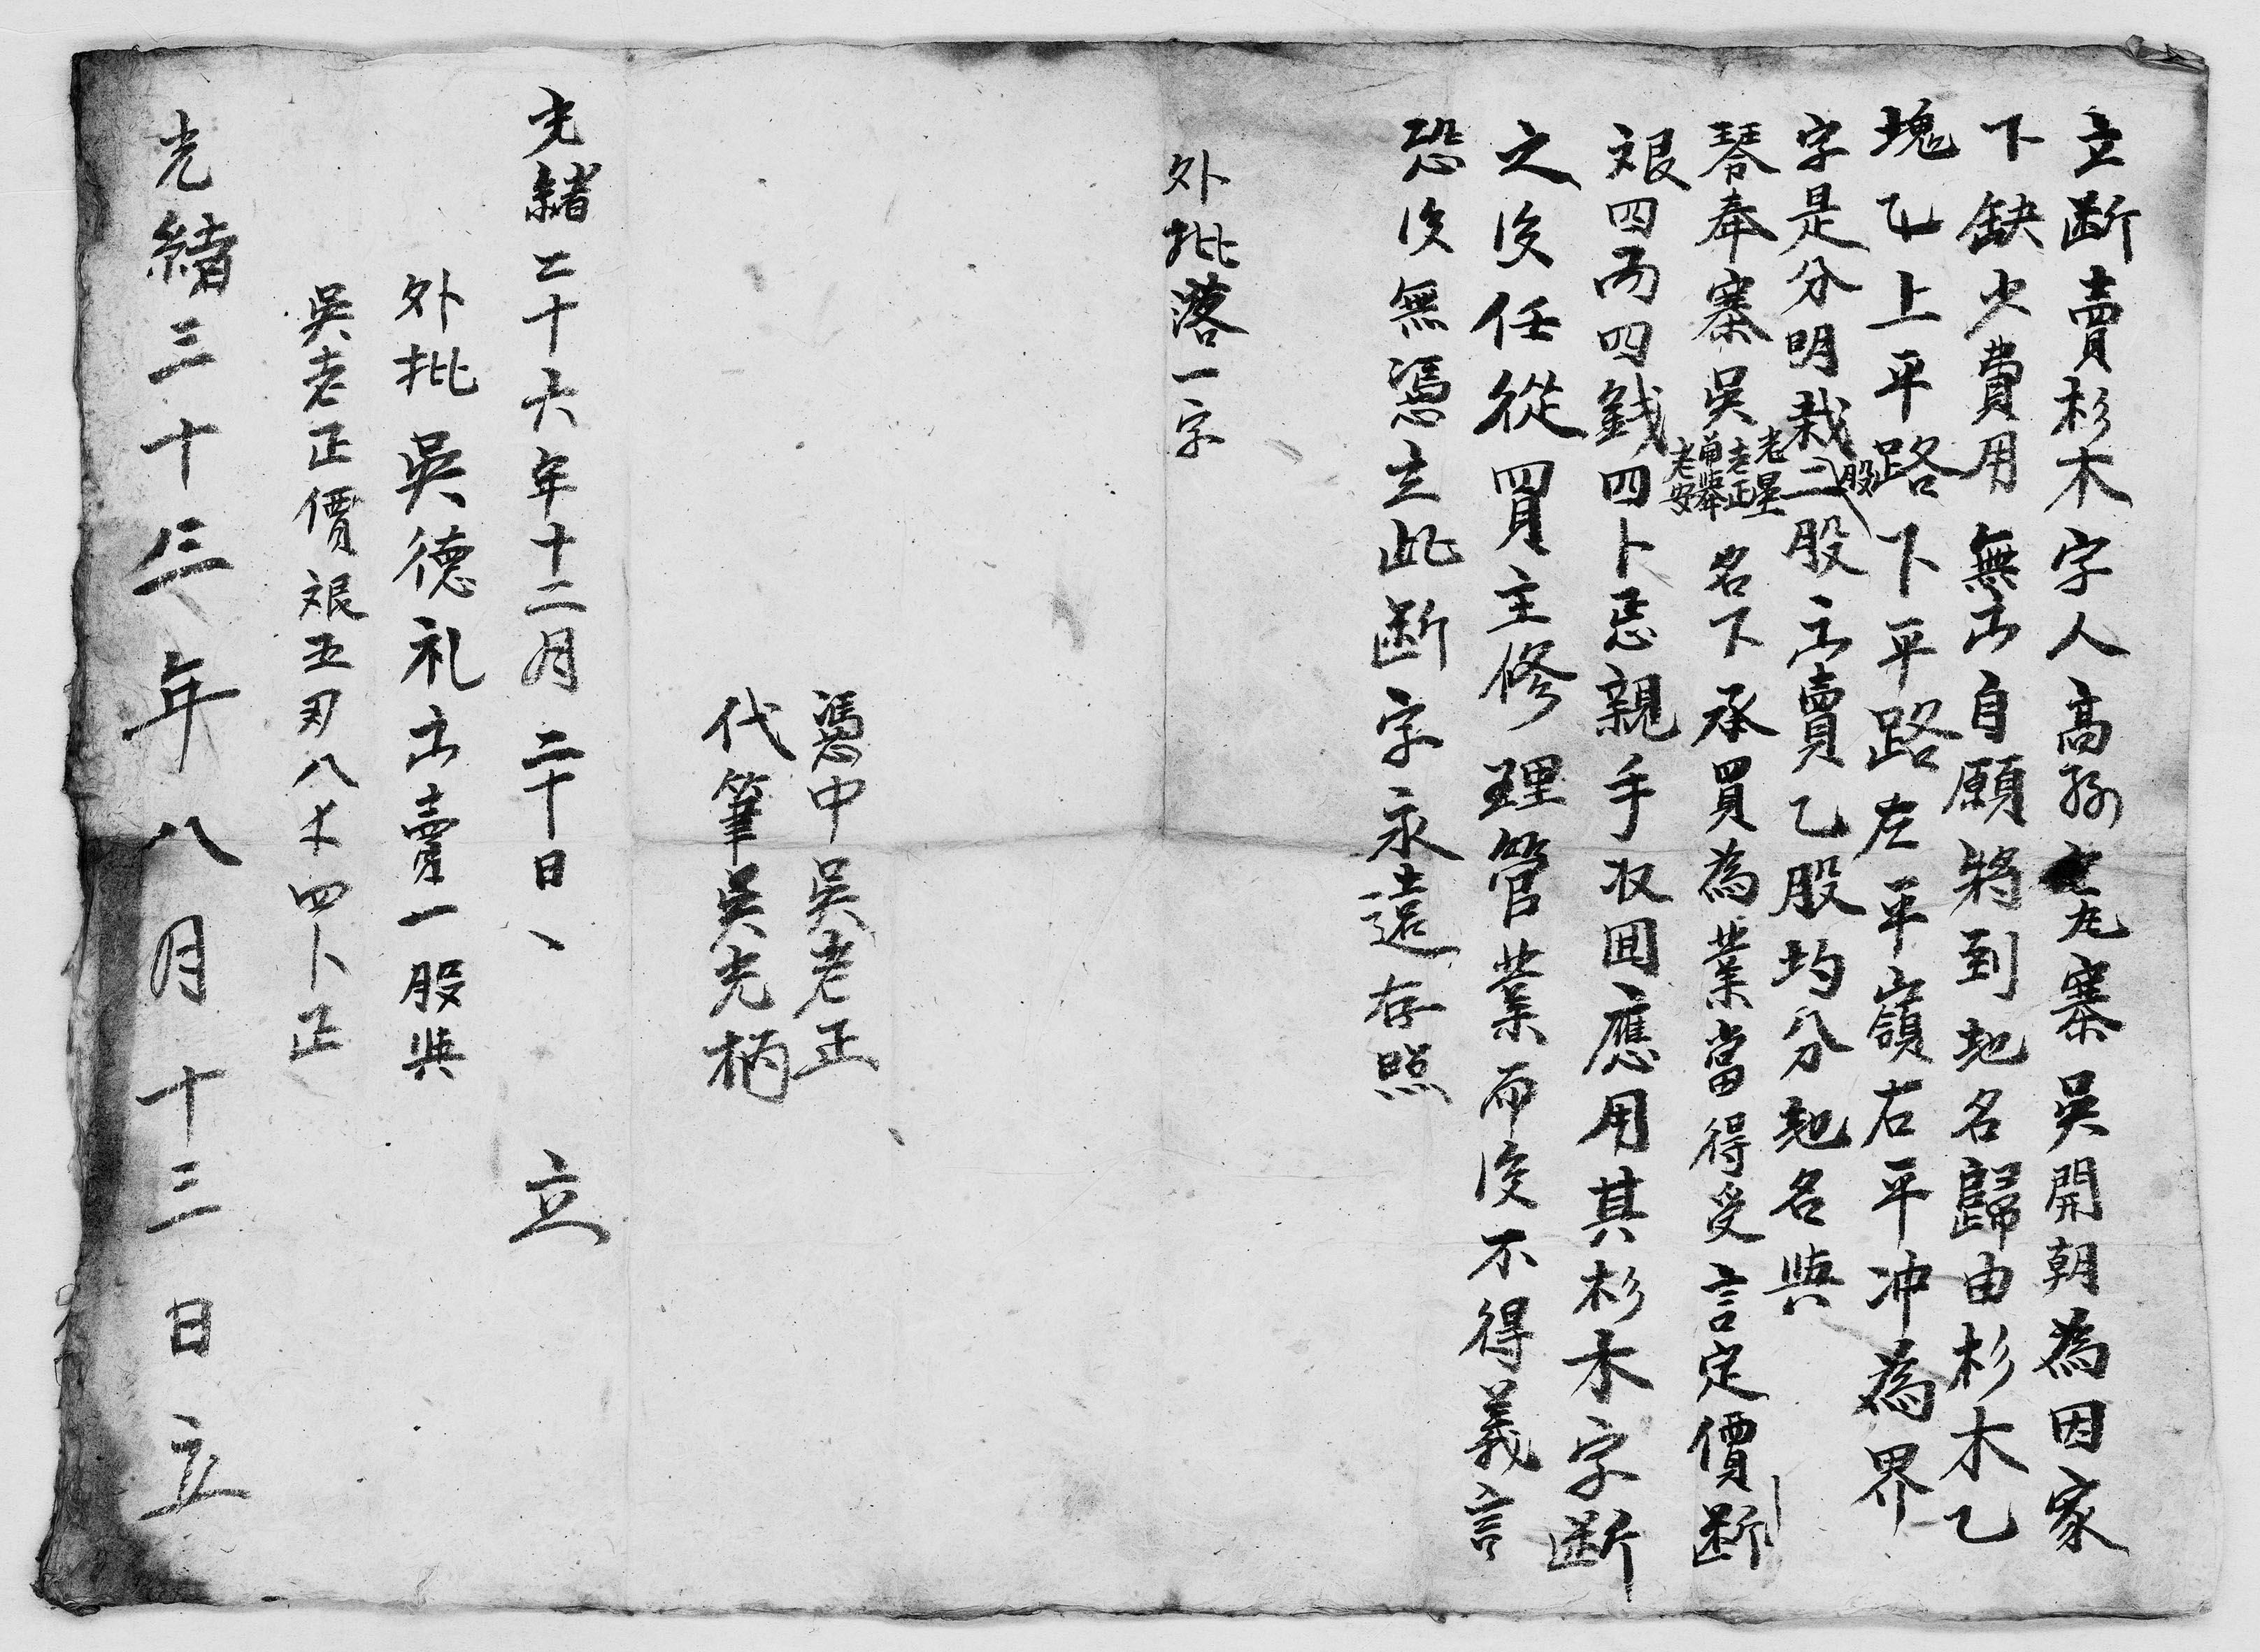 立斷賣杉木字人高孫九寨吳開朝為因家
下缺少費用無出自願將到地名歸由杉木乙
塊乙上平路下平路左平嶺右平冲為界
字是分明栽二股股出賣乙股均分地名與
琴奉寨吳老星老正甫舉老安名下承買為業當得受言定價斷
艮四両四錢四卜忌親手收囬應用其杉木字斷
之後任從買主修理管業而後不得義言
恐後無憑立此斷字永遠存照
外批落一字
憑中吳老正
代筆吳光柄
光緒二十六年十二月二十日、立
外批吳德礼出賣一股與
吳老正價艮五刃八才四卜正
光緒三十三年八月十三日立